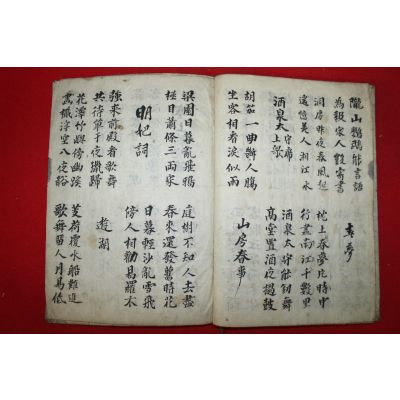 隴山鸚鵡能言語
為報家人數寄書
春夢
洞房昨夜春風起
枕上春夢片時中
遙憶美人湘江水
行盡南江千數里
酒泉太守席上醉
酒泉太守能劒舞
高堂置酒夜擊鼓
胡笳一曲斷人腸
坐客相看淚似雨
山房春事
梁園日暮亂飛鴉
庭樹不知人去盡
極目蕭條三兩家
春來還發舊時花
明妃詞
日暮驚沙亂雪飛
傍人相勸易羅衣
強來前殿看歌舞
共待單于夜獵歸
遊湖
花潭竹嶼傍幽蹊
芰荷覆水船難進
畫檝浮空入夜谿
歌舞留人月易低